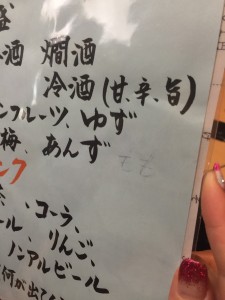 盛
酒 燗酒
冷酒(甘、辛、旨)
ンフルーツ、ゆず
梅、あんず
ンク
、コーラ、
ール、りんご、
ノンアルビール
何が出て